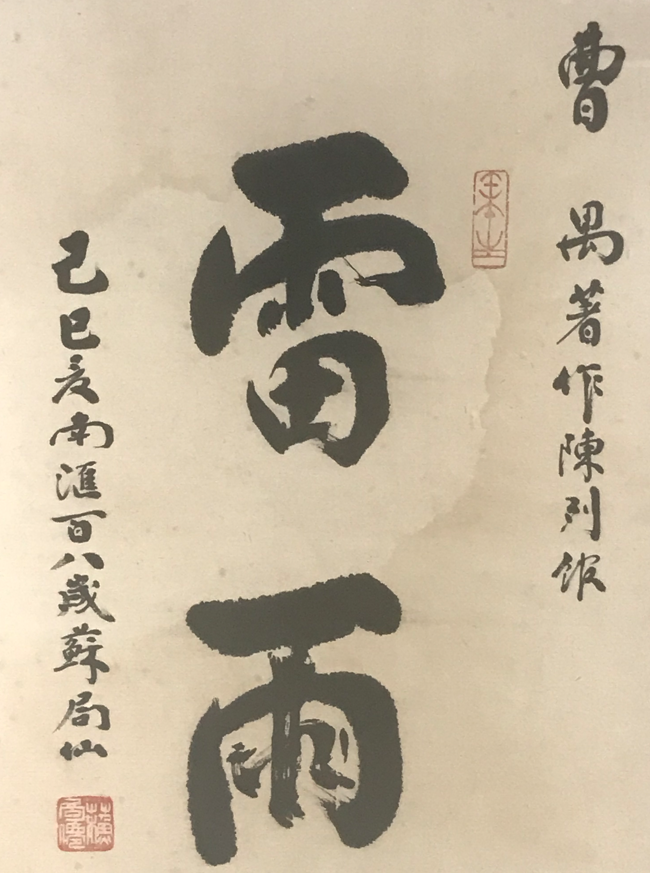 曹禺著作陳列館
雷雨
己巳夏南滙百八歲蘇局仙
蘇局僊